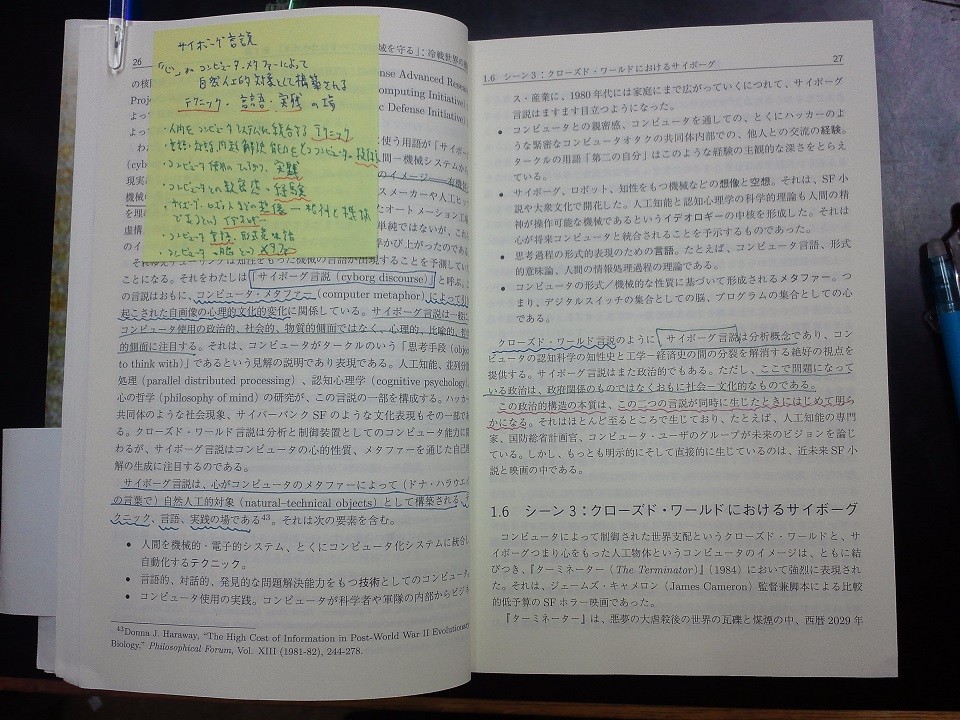 サイボーグ言説
「心」がコンピュータ・メタファーによって
自然人工的対象として構築される
テクニック・言語・実践の場
・人間をコンピュータシステムに統合するテクニック
・コンピュータ使用の 実践
・コンピュータとの親密感 経験
26
域を守る」:冷戦世界の
の核
ense Advanced Resea
Proje
omputing Initiative)
よっ
ic Defense Initiative)
よって
わ
使う用語が「サイボー
(cyb
間-機械システムか
現実
のイメージ——有機
機械の
スメーカーや人工ヒ
を理
たオートメーション工
虚構
単純ではないが、これ
のイ
浮かび上ったのであ
ことになる。それをわたしは「サイボーグ言説 (cyborg discourse)」と呼ぶ。こ
の言説はおもに、コンピュータ・メタファー (computer metaphor) によって引
起こされた自画像の心理的文化的変化に関係している。サイボーグ言説は一般に
コンピュータ使用の政治的、社会的、物質的側面ではなく、心理的、比喩的、哲
的側面に注目する。それは、コンピュータがタークルのいう「思考手段 (objec
to think with)」であるという見解の説明であり表現である。人工知能、並列分
処理 (parallel distributed processing) 、認知心理学 (cognitive psychology)
心の哲学 (philosophy of mind) の研究が、この言説の一部を構成する。ハッカ
共同体のような社会現象、サイバーパンク SF のような文化表現もその一部であ
る。クローズド・ワールド言説は分析と制御装置としてのコンピュータ能力に関
わるが、サイボーグ言説はコンピュータの心的性質、メタファーを通じた自己理
解の生成に注目するのである。
サイボーグ言説は、心がコンピュータのメタファーによって (ドナ・ハラウェイ
の言葉で) 自然人工的対象 (natural–technical objects) として構築される、テ
クニック、言語、実践の場である43。それは次の要素を含む。
• 人間を機械的・電子的システム、とくにコンピュータ化システムに統合し
自動化するテクニック。
• 言語的、対話的、発見的な問題解決能力をもつ技術としてのコンピュータ。
• コンピュータ使用の実践。コンピュータが科学者や軍隊の内部からビジネ
43Donna J. Haraway, "The High Cost of Information in Post-World War II Evolutionary
Biology," Philosophical Forum, Vol. XIII (1981-82), 244-278.
1.6 シーン 3:クローズド・ワールドにおけるサイボーグ 27
ス・産業に、1980 年代には家庭にまで広がっていくにつれて、サイボーグ
言説はますます目立つようになった。
• コンピュータとの親密感、コンピュータを通しての、とくにハッカーのよ
うな緊密なコンピュータオタクの共同体内部での、他人との交流の経験。
タークルの用語「第二の自分」はこのような経験の主観的な深さをとらえ
ている。
• サイボーグ、ロボット、知性をもつ機械などの想像と空想。それは、SF 小
説や大衆文化で開花した。人工知能と認知心理学の科学的理論も人間の精
神が操作可能な機械であるというイデオロギーの中核を形成した。それは
心が将来コンピュータと統合されることを予示するものであった。
• 思考過程の形式的表現のための言語。たとえば、コンピュータ言語、形式
的意味論、人間の情報処理過程の理論である。
• コンピュータの形式/機械的な性質に基づいて形成されるメタファー。つ
まり、デジタルスイッチの集合としての脳、プログラムの集合としての心
である。
クローズド・ワールド言説のように、サイボーグ言説は分析概念であり、コン
ピュータの認知科学の知性史と工学–経済史の間の分裂を解消する絶好の視点を
提供する。サイボーグ言説はまた政治的でもある。ただし、ここで問題になって
いる政治は、政府関係のものではなくおもに社会–文化的なものである。
この政治的構造の本質は、この二つの言説が同時に生じたときにはじめて明ら
かになる。それはほとんど至るところで生じており、たとえば、人工知能の専門
家、国防総省計画官、コンピュータ・ユーザのグループが未来のビジョンを論じ
ている。しかし、もっとも明示的にそして直接的に生じているのは、近未来 SF 小
説と映画の中である。
1.6 シーン 3:クローズド・ワールドにおけるサイボーグ
コンピュータによって制御された世界支配というクローズド・ワールドと、サ
イボーグつまり心をもった人工物体というコンピュータのイメージは、ともに結
びつき、『ターミネーター (The Terminator)』(1984) において強烈に表現され
た。それは、ジェームズ・キャメロン (James Cameron) 監督兼脚本による比較
的低予算の SF ホラー映画であった。
『ターミネーター』は、悪夢の大虐殺後の世界の瓦礫と煤煙の中、西暦 2029 年